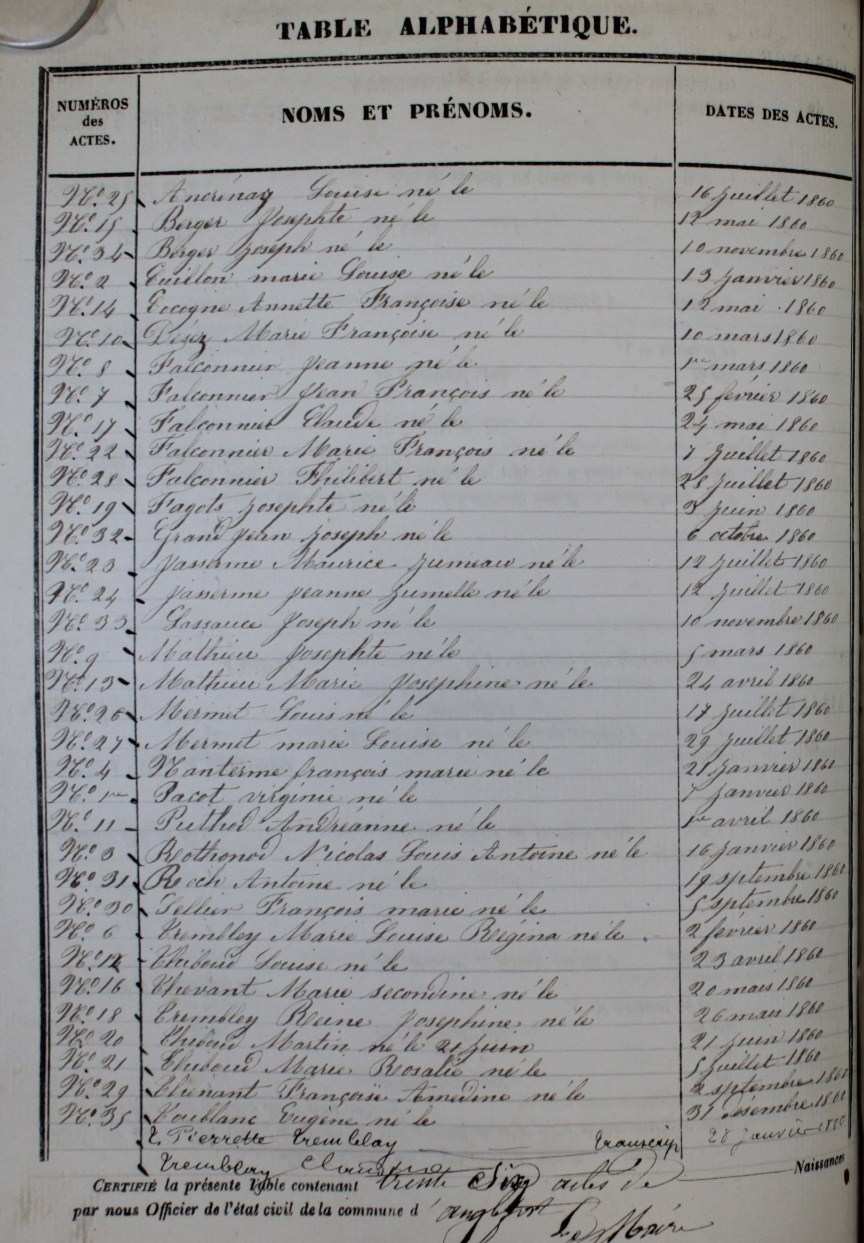 TABLE ALPHABÉTIQUE.
NUMÉROS des ACTES. NOMS ET PRÉNOMS. DATES DES ACTES.
N.o 25 Ancrénaz Louise né le 16 juillet 1860
N.o 15 Berger Josephte né le 12 mai 1860
N.o 34 Berger Joseph né le 10 novembre 1860
N.o 2 Cuillon marie Louise né le 13 janvier 1860
N.o 14 Cocogne Annette Françoise né le 12 mai 1860
N.o 10 Marie Françoise né le 10 mars 1860
N.o 8 Falconnier Jeanne né le 1er mars 1860
N.o 7 Falconnier Jean François né le 25 février 1860
N.o 17 Falconnier Claude né le 24 mai 1860
N.o 22 Falconnier Marie François né le 7 juillet 1860
N.o 28 Falconnier Philibert né le 28 juillet 1860
N.o 19 Fagots Josephte né le 3 juin 1860
N.o 32 Grand Jean Joseph né le 6 octobre 1860
N.o 23 Jasserme Maurice Jumeau né le 12 juillet 1860
N.o 24 Jasserme Jeanne Jumelle né le 12 juillet 1860
N.o 33 Lassauce Joseph né le 10 novembre 1860
N.o 9 Mathieu Josephte né le 5 mars 1860
N.o 13 Mathieu Marie Josephine né le 24 avril 1860
N.o 26 Mermet Louis né le 17 juillet 1860
N.o 27 Mermet marie Louise né le 29 juillet 1860
N.o 4 Nanterme françois marie né le 21 janvier 1860
N.o 1er Pacot virginie né le 7 janvier 1860
N.o 11 Puthod Andréanne né le 1er avril 1860
N.o 3 Rothonod Nicolas Louis Antoine né le 16 janvier 1860
N.o 31 Roch Antoine né le 19 septembre 1860
N.o 30 Tellier François marie né le 5 septembre 1860
N.o 6 Trembley Marie Louise Regina né le 2 février 1860
N.o 12 Thiboud Louise né le 23 avril 1860
N.o 16 Thevant Marie secondine né le 20 mais 1860
N.o 18 Trembley Reine Josephine né le 26 mais 1860
N.o 20 Thiboud Martin né le 21 juin 21 juin 1860
N.o 21 Thiboud Marie Rosalie né le 5 juillet 1860
N.o 29 Thenant Françoise Amedine né le 2 septembre 1860
N.o 35 Voublanc Eugène né le 31 désembre 1860
Pierrette Tremblay transcrip 28 janvier 1860
Tremblay
CERTIFIÉ la présente Table contenant trente Six actes de Naissances
par nous Officier de l'état civil de la commune d'anglefort
Le Maire